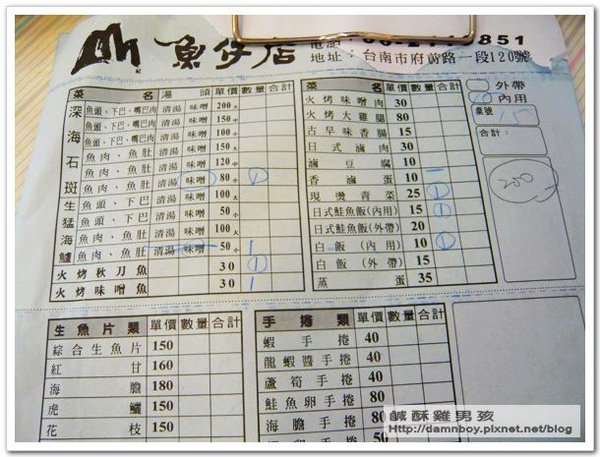 魚仔店
851
地址：台南市府前路一段120號
菜 名 湯 頭 單價 數量 合計
深海石斑
魚頭、下巴、嘴巴肉 清湯 味噌 200大
魚頭、下巴、嘴巴肉 清湯 味噌 150中
魚頭、下巴、嘴巴肉 清湯 味噌 100小
魚肉、魚肚 清湯 味噌 150大
魚肉、魚肚 清湯 味噌 120中
魚肉、魚肚 清湯 味噌 80小 1
生猛海鱸
魚頭、下巴 清湯 味噌 100大
魚頭、下巴 清湯 味噌 50小
魚肉、魚肚 清湯 味噌 100大
魚肉、魚肚 清湯 味噌 50小 1
火烤秋刀魚 30 1
火烤味噌魚 30 1
菜 名 單價 數量 合計
火烤味噌肉 30
火烤大雞腿 80
古早味香腸 15
日式滷肉 30
滷豆腐 10
香滷蛋 10
現燙青菜 25 1
日式鮭魚飯(內用) 15 1
日式鮭魚飯(外帶) 20
白飯(內用) 10 1
白飯(外帶) 15
蒸蛋 35
外帶
內用
桌號 15
合計：
200
生魚片類 單價 數量 合計
綜合生魚片 150
紅甘 160
海膽 180
虎鰡 150
花枝 150
手捲類 單價 數量 合計
蝦手捲 40
龍蝦醬手捲 40
蘆筍手捲 40
鮭魚卵手捲 80
海膽手捲 80
鹹酥雞男孩
Http://damnboy.pixnet.net/blog